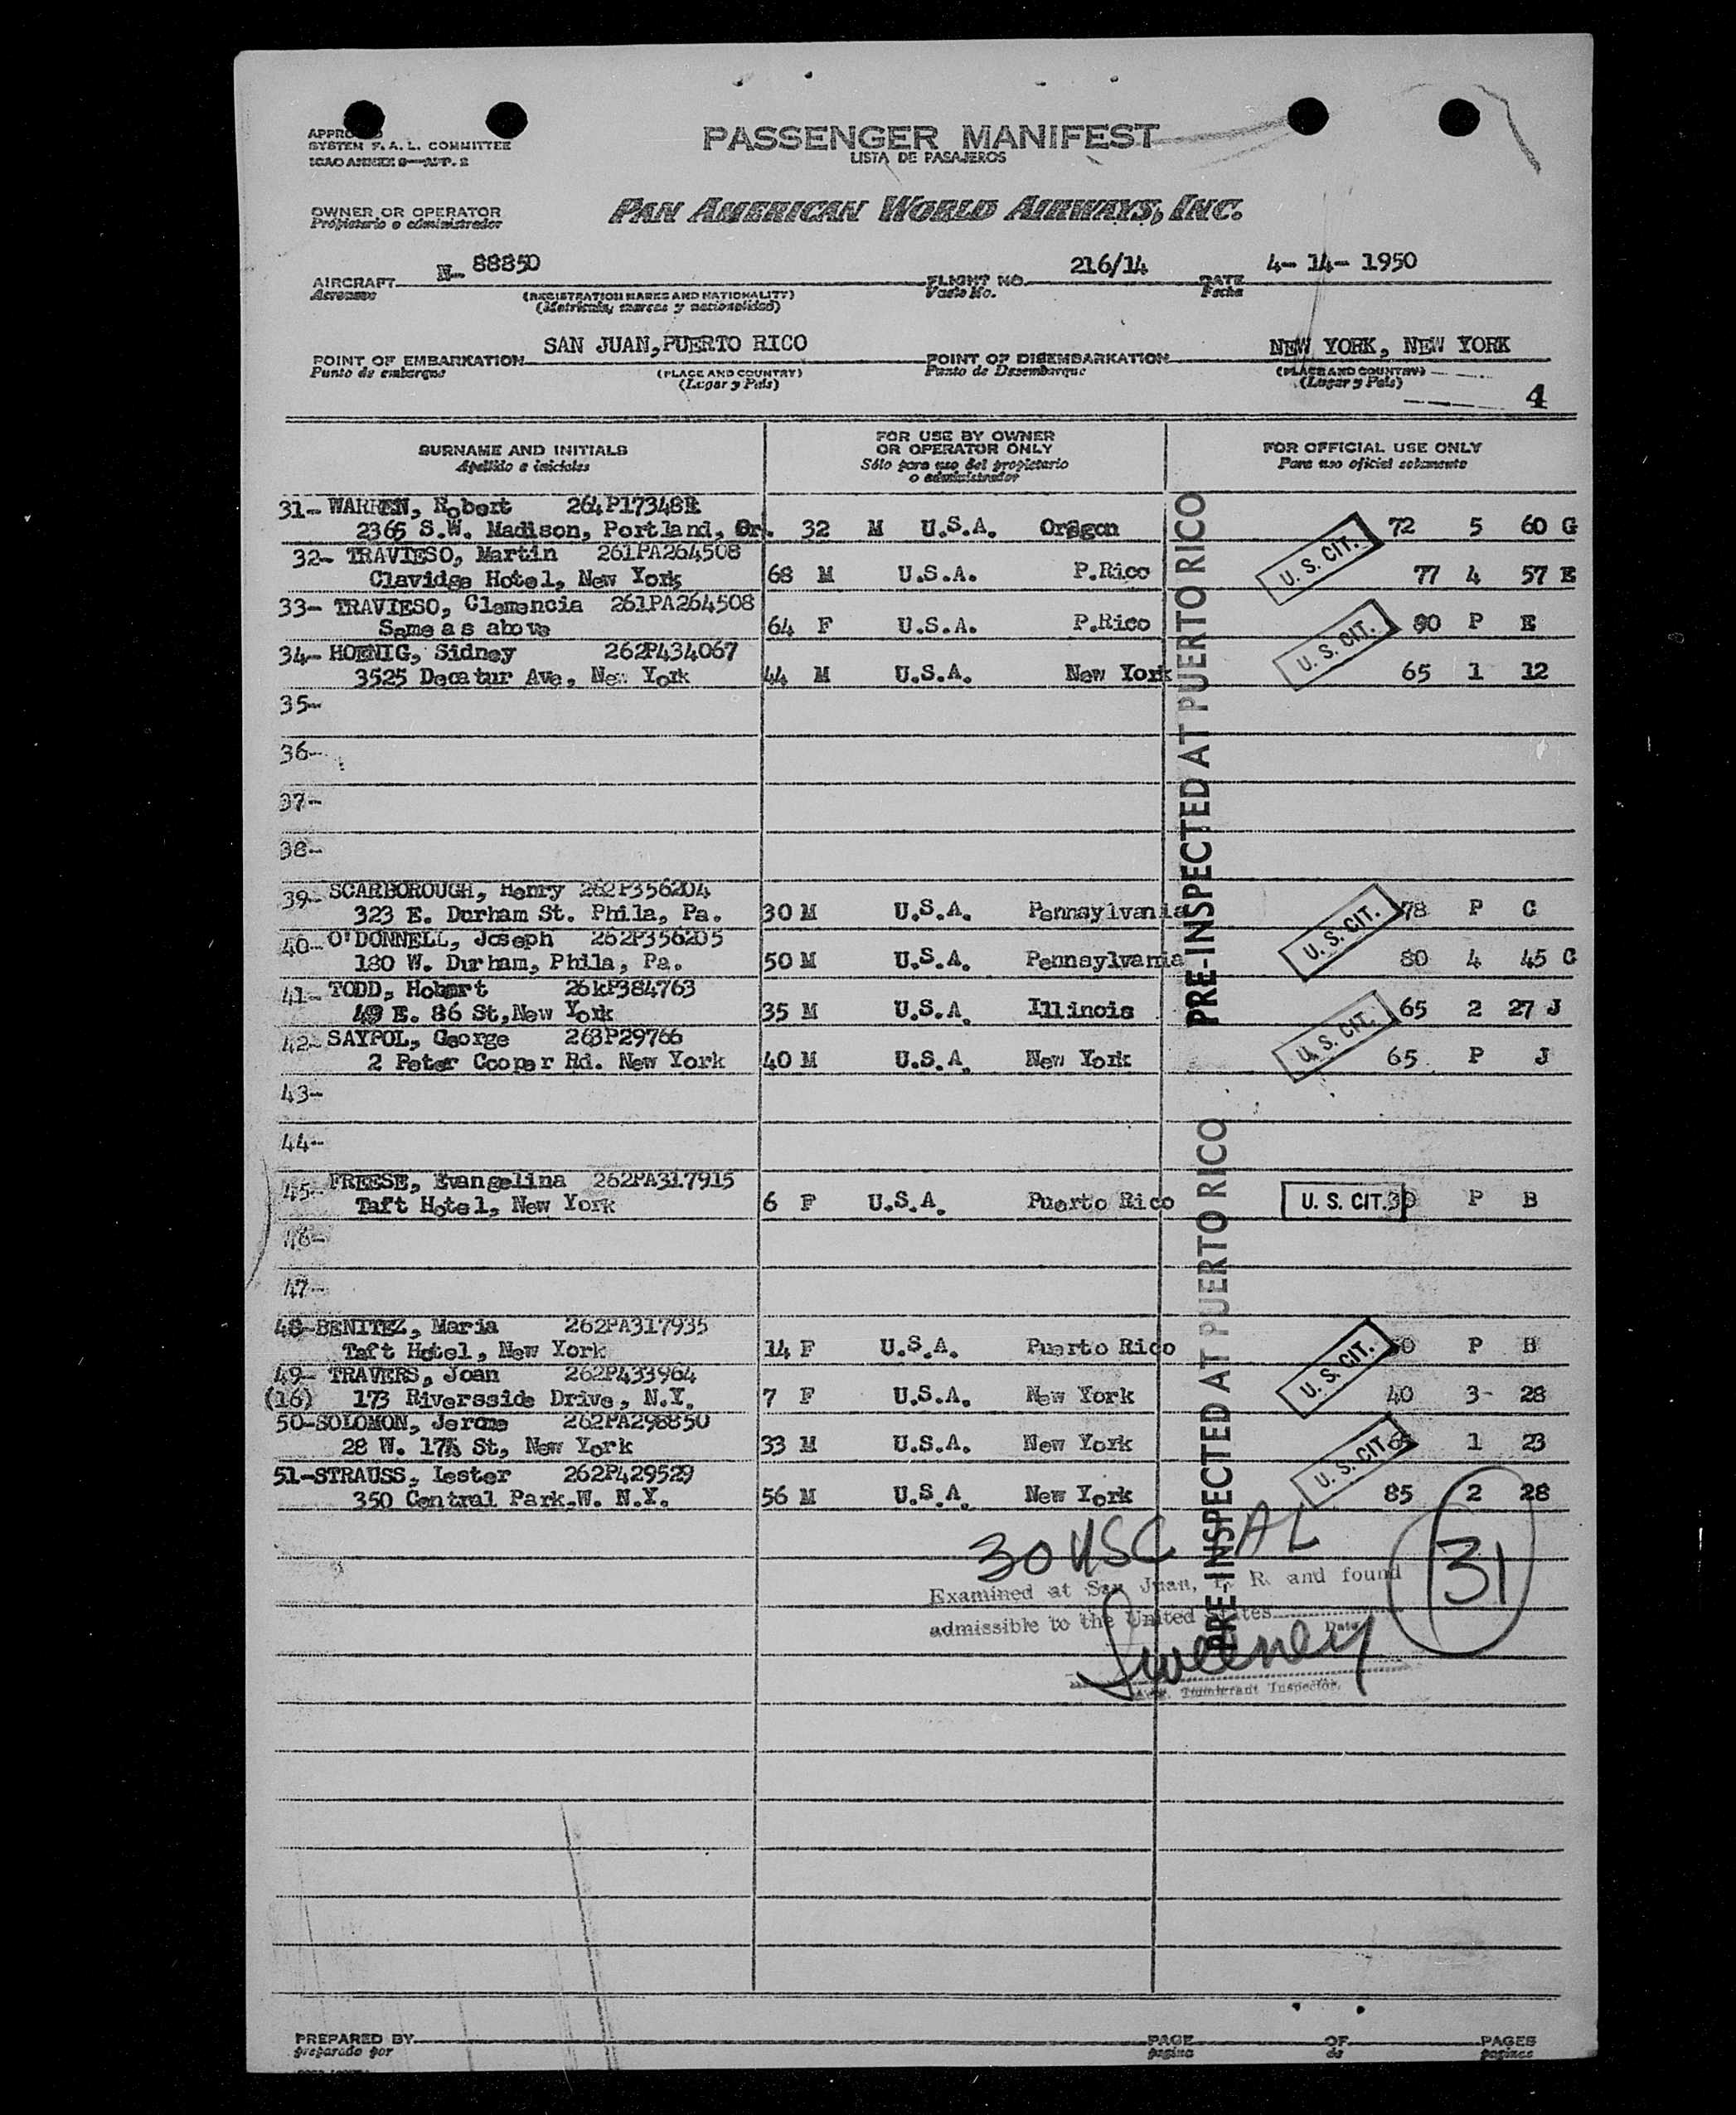 APPROVED
SYSTEM F. A. L. COMMITTEE
ICAO ANNEX 9—APP. 2
PASSENGER MANIFEST
LISTA DE PASAJEROS
OWNER OR OPERATOR
Propietario o administrador
PAN AMERICAN WORLD AIRWAYS, INC.
AIRCRAFT N- 88850 FLIGHT NO. 216/14 DATE 4- 14- 1950
Aeronave (REGISTRATION MARKS AND NATIONALITY) Vuelo No. Fecha
(Matricula, marcas y nacionalidad)
POINT OF EMBARKATION SAN JUAN,PUERTO RICO POINT OF DISEMBARKATION NEW YORK, NEW YORK
Punto de embarque (PLACE AND COUNTRY) Punto de Desembarque (PLACE AND COUNTRY)
(Lugar y País) (Lugar y País)
4
SURNAME AND INITIALS FOR USE BY OWNER OR OPERATOR ONLY FOR OFFICIAL USE ONLY
Apellido e iniciales Sólo para uso del propietario o administrador Para uso oficial solamente
31- WARREN, Robert 264P17348R
2365 S.W. Madison, Portland, Or. 32 M U.S.A. Oregon 72 5 60 G
32- TRAVIESO, Martin 261PA264508
Clavidge Hotel, New York 68 M U.S.A. P.Rico U. S. CIT. 77 4 57 E
33- TRAVIESO, Clemencia 261PA264508
Same as above 64 F U.S.A. P.Rico 90 P E
34- HOENIG, Sidney 262P434067
3525 Decatur Ave, New York 44 M U.S.A. New York U. S. CIT. 65 1 12
35-
36-
37-
38-
PRE-INSPECTED AT PUERTO RICO
39- SCARBOROUGH, Henry 262P356204
323 E. Durham St. Phila, Pa. 30 M U.S.A. Pennsylvania 78 P G
40- O'DONNELL, Joseph 262P356205
180 W. Durham, Phila, Pa. 50 M U.S.A. Pennsylvania U. S. CIT. 80 4 45 G
41- TODD, Hobart 26kP384763
49 E. 86 St,New York 35 M U.S.A. Illinois 65 2 27 J
42- SAYPOL, George 263P29766
2 Peter Cooper Rd. New York 40 M U.S.A. New York U. S. CIT. 65 P J
43-
44-
45- FREESE, Evangelina 262PA317915
Taft Hotel, New York 6 F U.S.A. Puerto Rico U. S. CIT. 30 P B
46-
47-
48-BENITEZ, Maria 262PA317935
Taft Hotel, New York 14 F U.S.A. Puerto Rico P B
49- TRAVERS, Joan 262P433964
(16) 173 Riversside Drive, N.Y. 7 F U.S.A. New York U. S. CIT. 40 3- 28
50-SOLOMON, Jerome 262PA298850
28 W. 174 St, New York 33 M U.S.A. New York 1 23
51-STRAUSS, Lester 262P429529
350 Central Park.W. N.Y. 56 M U.S.A. New York U. S. CIT. 85 2 28
PRE-INSPECTED AT PUERTO RICO
30 USC AL 31
Examined at San Juan, P. R. and found
admissible to the United States
Date
Sweeney
Immigrant Inspector.
PREPARED BY PAGE OF PAGES
preparado por pagina de paginas